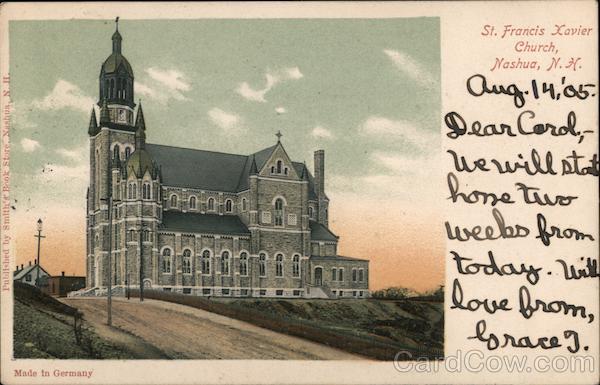 St. Francis Xavier
Church,
Nashua, N.H.
Aug. 14,'05.
Dear Carol,-
We will start
home two
weeks from
today. With
love from,
Grace T.
Published by Smith's Book Store, Nashua, N. H.
Made in Germany
CardCow.com